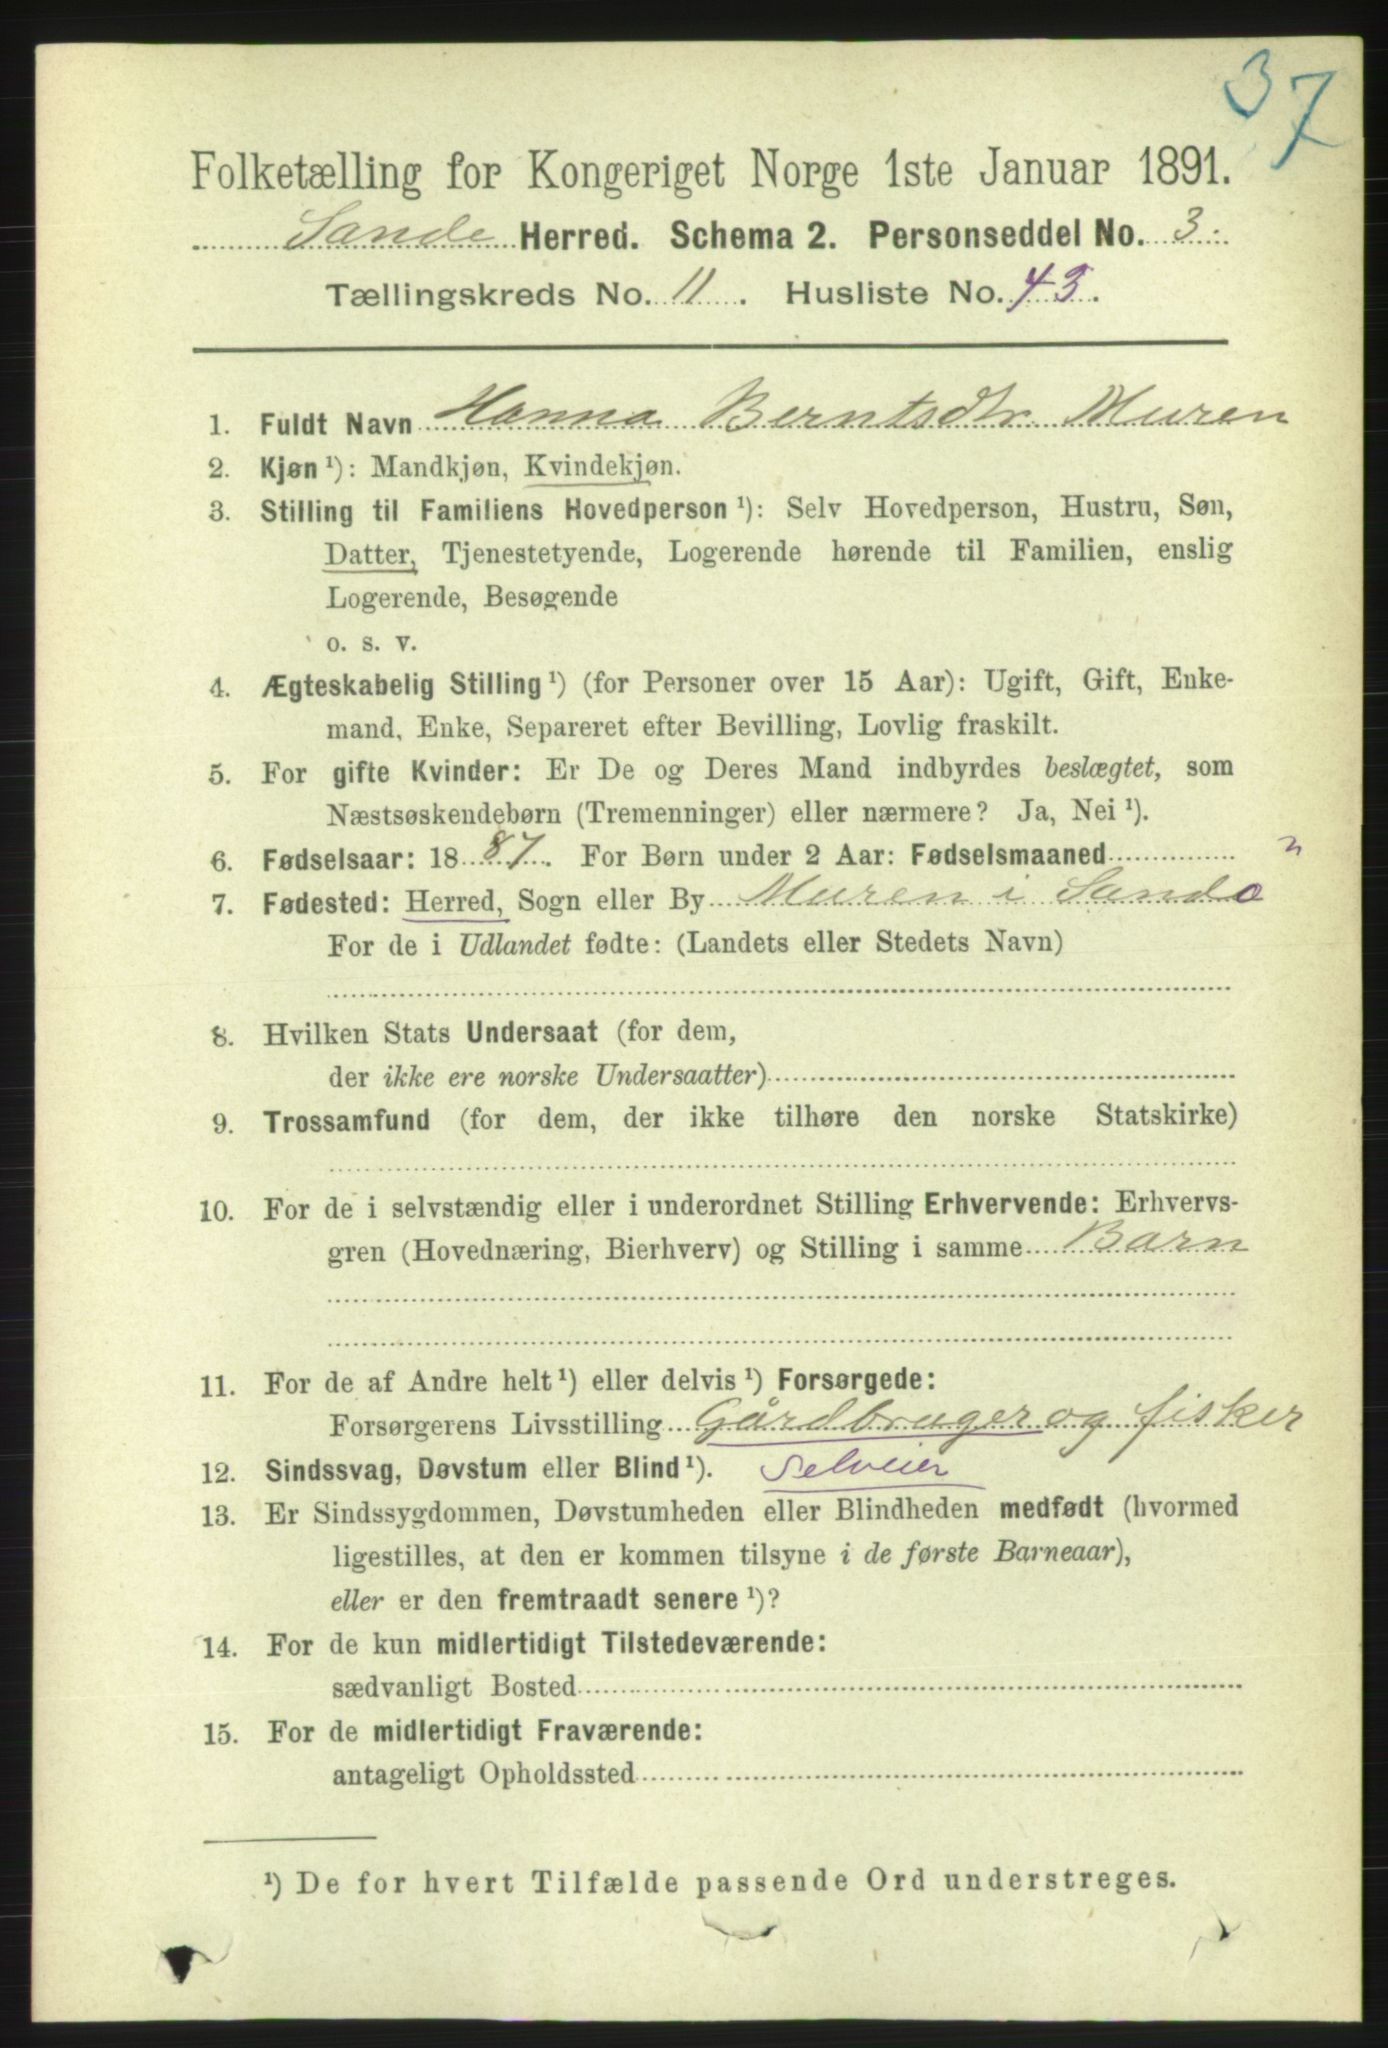 37
Folketælling for Kongeriget Norge 1ste Januar 1891.
Sande Herred. Schema 2. Personseddel No. 3.
Tællingskreds No. 11. Husliste No. 43.
1. Fuldt Navn Hanna Berntsdtr. Muren
2. Kjøn ¹): Mandkjøn, Kvindekjøn.
3. Stilling til Familiens Hovedperson ¹): Selv Hovedperson, Hustru, Søn,
Datter, Tjenestetyende, Logerende hørende til Familien, enslig
Logerende, Besøgende
o. s. v.
4. Ægteskabelig Stilling ¹) (for Personer over 15 Aar): Ugift, Gift, Enke-
mand, Enke, Separeret efter Bevilling, Lovlig fraskilt.
5. For gifte Kvinder: Er De og Deres Mand indbyrdes beslægtet, som
Næstsøskendebørn (Tremenninger) eller nærmere? Ja, Nei ¹).
6. Fødselsaar: 1887. For Børn under 2 Aar: Fødselsmaaned
7. Fødested: Herred, Sogn eller By Muren i Sande
For de i Udlandet fødte: (Landets eller Stedets Navn)
8. Hvilken Stats Undersaat (for dem,
der ikke ere norske Undersaatter)
9. Trossamfund (for dem, der ikke tilhøre den norske Statskirke)
10. For de i selvstændig eller i underordnet Stilling Erhvervende: Erhvervs-
gren (Hovednæring, Bierhverv) og Stilling i samme Barn
11. For de af Andre helt ¹) eller delvis ¹) Forsørgede:
Forsørgerens Livsstilling Gårdbruger og fisker
12. Sindssvag, Døvstum eller Blind ¹). Selveier
13. Er Sindssygdommen, Døvstumheden eller Blindheden medfødt (hvormed
ligestilles, at den er kommen tilsyne i de første Barneaar),
eller er den fremtraadt senere ¹)?
14. For de kun midlertidigt Tilstedeværende:
sædvanligt Bosted
15. For de midlertidigt Fraværende:
antageligt Opholdssted
¹) De for hvert Tilfælde passende Ord understreges.